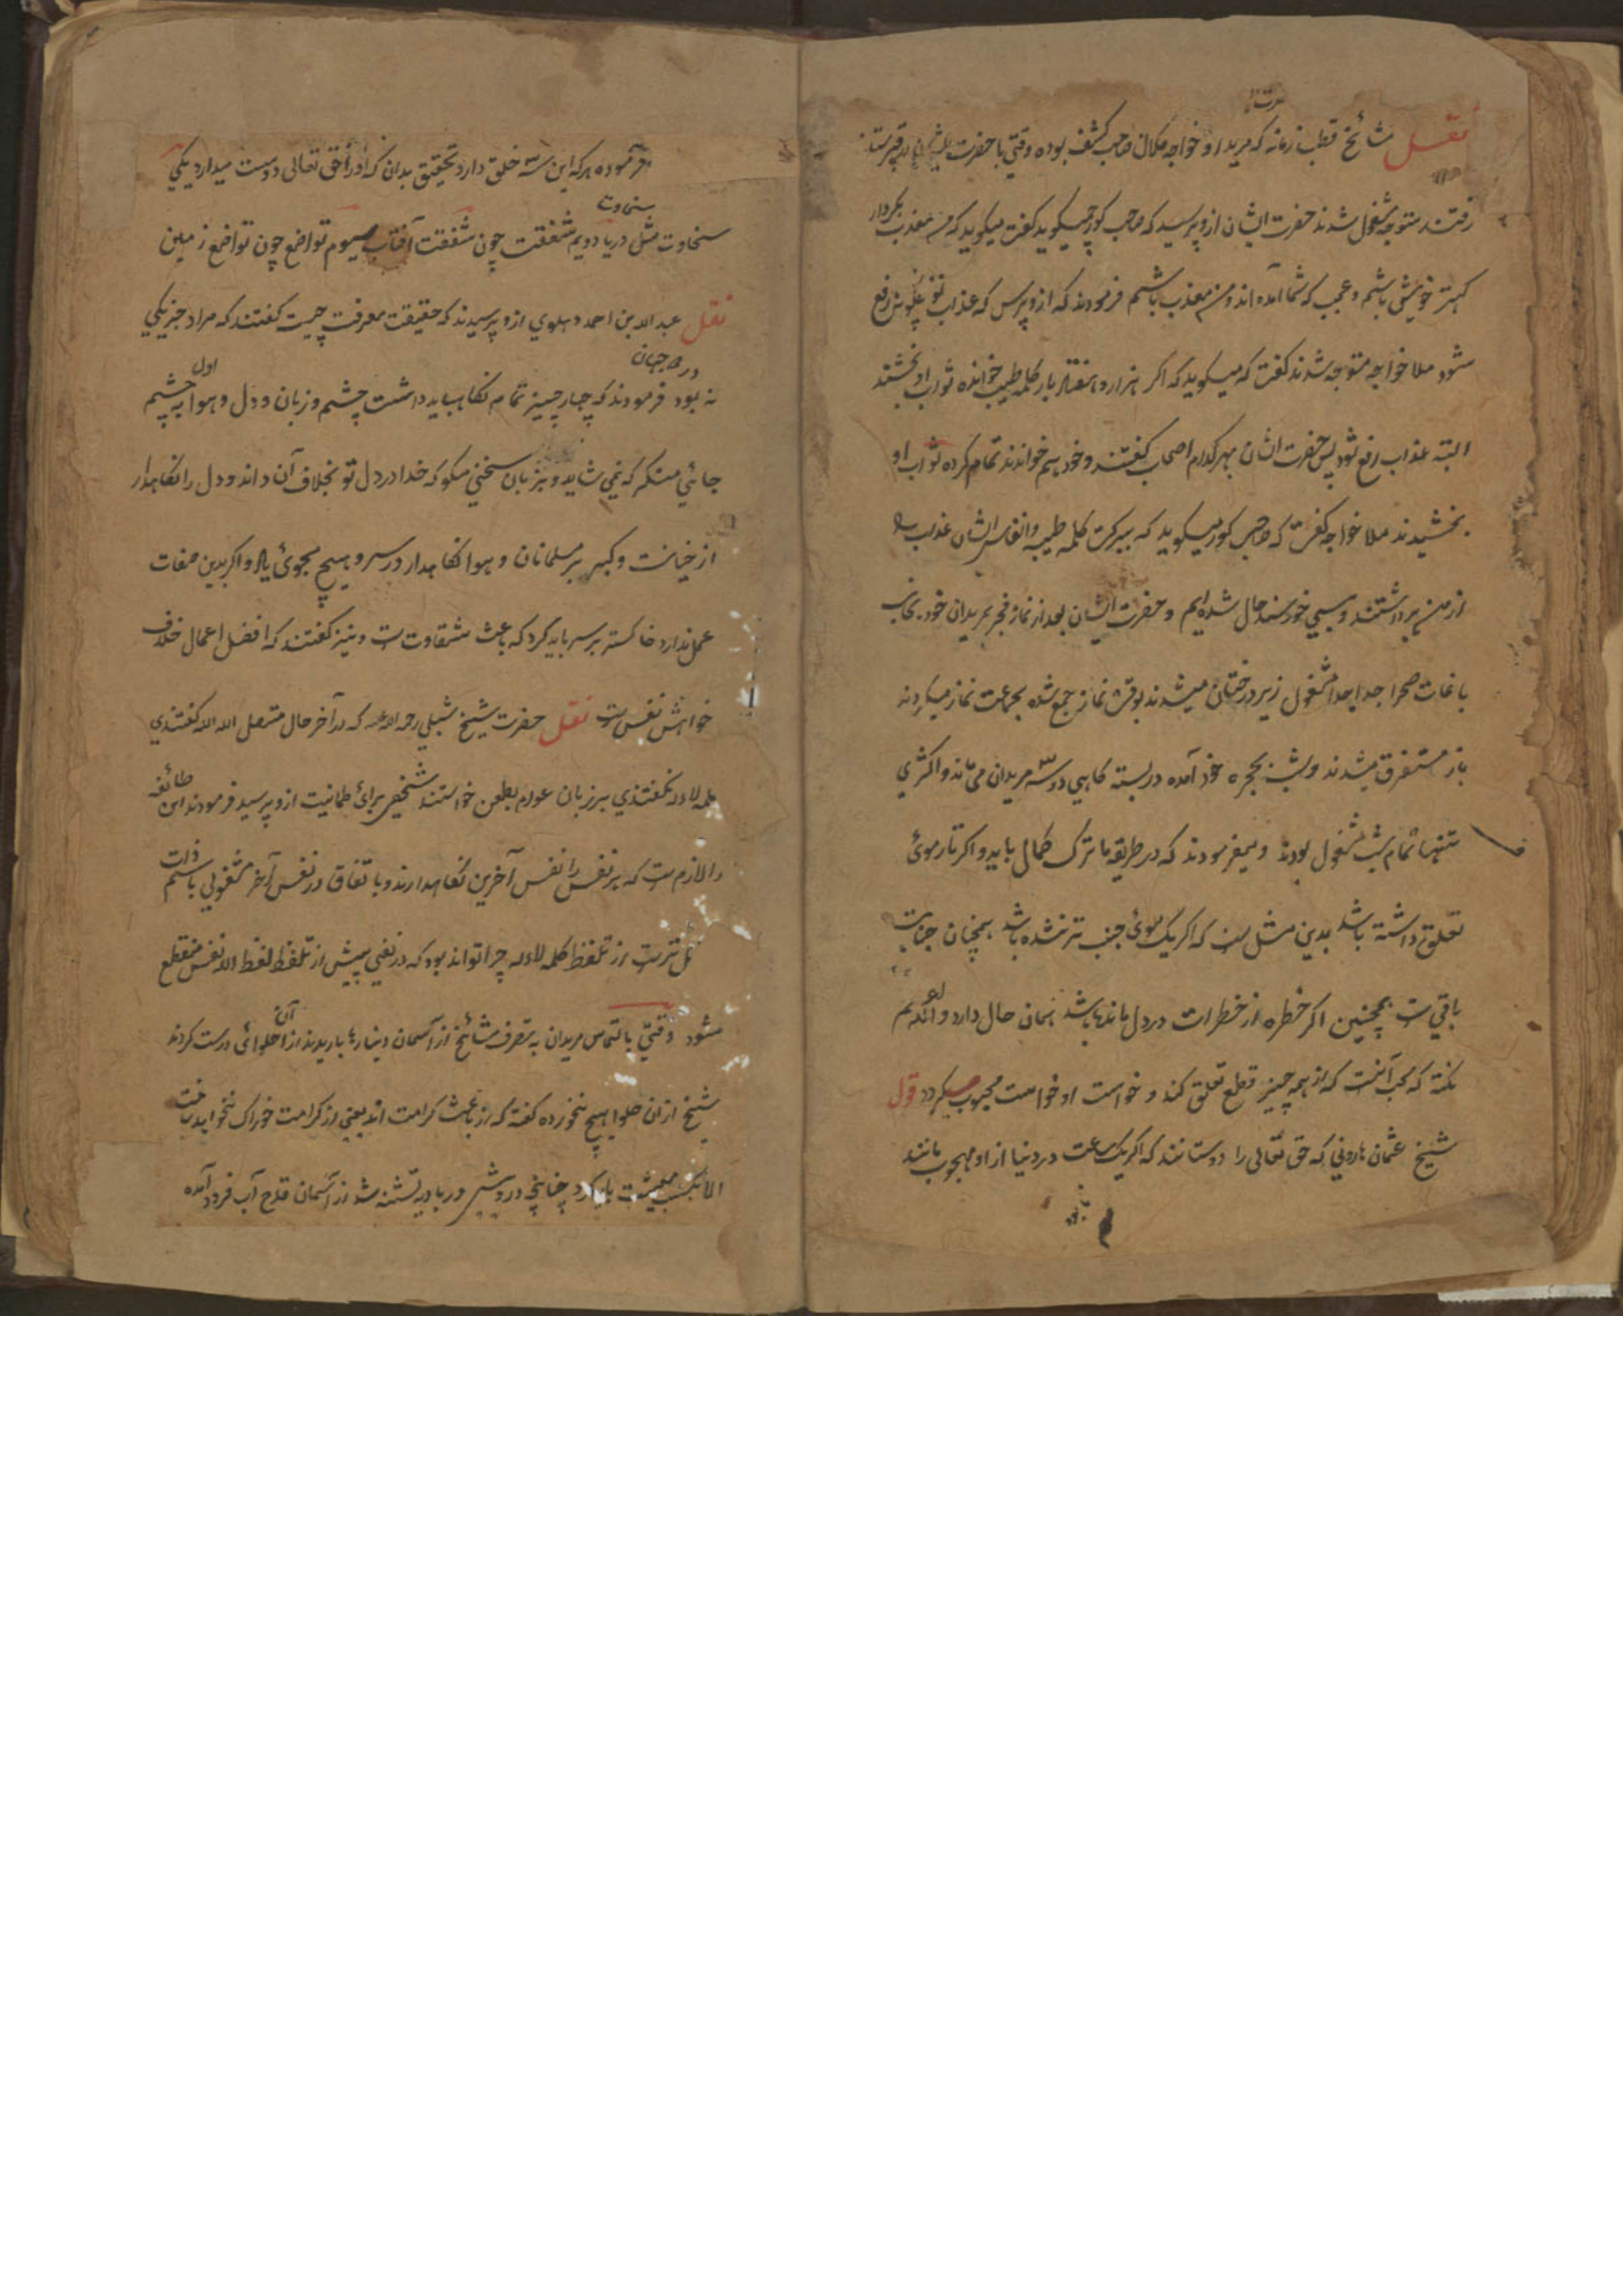 نقل مشائخ قطب زمانه که مرید او خواجه کلان صاحب کشف بوده وقتی با حضرت ایشان در قبرستان
رفتند متوجه مشغول شدند حضرت ایشان ازو پرسید که صاحب کور چه میکوید کفت میکوید که من معذب بکردار
خویشی باشم و عجب که شما آمده اند و من معذب باشم فرمودند که ازو پرس که عذاب تو چکونه رفع
شود ملا خواجه متوجه شدند کفت که میکوید که اکر هزار و هفتاد بار کلمه طیب خوانده ثواب او بخشند
البته عذاب رفع شود پس حضرت ایشان بهر کدام اصحاب کفتند و خود هم خواندند تمام کرده ثواب او
بخشیدند ملا خواجه کفت که صاحب کور میکوید که ببرکت کلمه طیبه و انفاس ایشان عذاب
از من برداشتند و بسی خورسند حال شده ایم و حضرت ایشان بعد از نماز فجر بمریدان خود بجانب
باغات صحرا جدا جدا مشغول زیر درختان میشدند بوقت نماز جمع شده بجماعت نماز میکردند
باز متفرق میشدند و شب بحجره خود آمده در بسته کاهی دو سه مریدان می ماند و اکثری
تنها تمام شب مشغول بودند و میفرمودند که در طریقه ما ترک کمالی باید و اکر تار موئ
تعلق داشته باشد بدین مثل است که اکر یک موئ جنب تر نشده باشد همچنان جنابت
باقی ست همچنین اکر خطره از خطرات در دل مانده باشد همان حال دارد و
نکته که محب آنست که از همه چیز قطع تعلق کند و خواست او خواست محبوب میکردد قول
شیخ عثمان هارونی که حق تعالی را دوستانند که اکر یک ساعت در دنیا از او محجوب مانند
فرموده هر که این سه خلق دارد تحقیق بدان که او را حق تعالی دوست میدارد یکی
سخاوت مثل دریا دویم شفقت چون شفقت آفتاب سیوم تواضع چون تواضع زمین
نقل عبد الله بن احمد دهلوی ازو پرسیدند که حقیقت معرفت چیست کفتند که مراد جز یکی
در هر دو جهان نه بود فرمودند که چهار چیز تمام نکاه باید داشت چشم و زبان و دل و هوا اول به چشم
جائی منکر که نمی شاید و بزبان سخنی مکو که خدا در دل تو بخلاف آن داند و دل را نکاهدار
از خیانت و کبر بر مسلمانان و هوا نکاهدار در سر و هیچ مجوئ و اکر بدین صفات
عمل ندارد خاکستر بر سر باید کرد که باعث شقاوت است و نیز کفتند که افضل اعمال خلاف
خواهش نفس است نقل حضرت شیخ شبلی رحمه الله علیه که در آخر حال متصل الله الله کفتندی
کلمه لا اله نکفتندی بر زبان عوام بطعن خواستند شخصی برائ طمانیت ازو پرسید فرمودند این طائفه
را لازم ست که هر نفس را نفس آخرین نکاهدارند و با تفاق در نفس آخر مشغولی باسم ذات
تر ست از تلفظ کلمه لا اله چرا تواند بود که در نفی پیش از تلفظ لفظ الا نفس منقطع
شود وقتی بالتماس مریدان به تصرف مشائخ از آسمان دینارها باریدند از آن حلوائ درست کردند
شیخ از آن حلوا هیچ نخورده کفته که از باعث کرامت اند یعنی از کرامت خوراک نخواهد ساخت
الا بکسب معیشت باید کرد چنانچه درویشی در بادیه تشنه شد از آسمان قدح آب فرود آمده